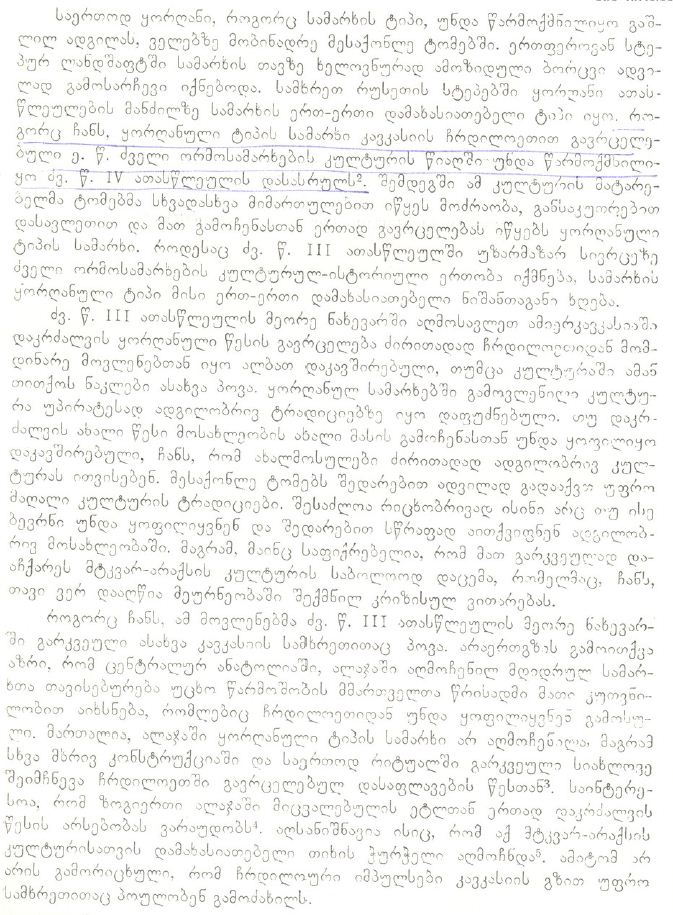 საერთოდ ყორღანი, როგორც სამარხის ტიპი, უნდა წარმოქმნილიყო გაშ-
ლილ ადგილას, ველებზე მობინადრე მესაქონლე ტომებში. ერთფეროვან სტე-
პურ ლანდშაფტში სამარხის თავზე ხელოვნურად ამოზიდული ბორცვი ადვი-
ლად გამოსარჩევი იქნებოდა. სამხრეთ რუსეთის სტეპებში ყორღანი ათას-
წლეულების მანძილზე სამარხის ერთ-ერთი დამახასიათებელი ტიპი იყო. რო-
გორც ჩანს, ყორღანული ტიპის სამარხი კავკასიის ჩრდილოეთით გავრცელე-
ბული ე. წ. ძველი ორმოსამარხების კულტურის წიაღში უნდა წარმოქმნილი-
ყო ძვ. წ. IV ათასწლეულის დასასრულს². შემდეგში ამ კულტურის მატარე-
ბელმა ტომებმა სხვადასხვა მიმართულებით იწყეს მოძრაობა, განსაკუთრებით
დასავლეთით და მათ გამოჩენასთან ერთად გავრცელებას იწყებს ყორღანული
ტიპის სამარხი. როდესაც ძვ. წ. III ათასწლეულში უზარმაზარ სივრცეზე
ძველი ორმოსამარხების კულტურულ-ისტორიული ერთობა იქმნება, სამარხის
ყორღანული ტიპი მისი ერთ-ერთი დამახასიათებელი ნიშანთაგანი ხდება.
ძვ. წ. III ათასწლეულის მეორე ნახევარში აღმოსავლეთ ამიერკავკასიაში
დაკრძალვის ყორღანული წესის გავრცელება ძირითადად ჩრდილოეთიდან მომ-
დინარე მოვლენებთან იყო ალბათ დაკავშირებული, თუმცა კულტურაში ამან
თითქოს ნაკლები ასახვა პოვა. ყორღანულ სამარხებში გამოვლენილი კულტუ-
რა უპირატესად ადგილობრივ ტრადიციებზე იყო დაფუძნებული. თუ დაკრ-
ძალვის ახალი წესი მოსახლეობის ახალი მასის გამოჩენასთან უნდა ყოფილიყო
დაკავშირებული, ჩანს, რომ ახალმოსულები ძირითადად ადგილობრივ კულ-
ტურას ითვისებენ. მესაქონლე ტომებს შედარებით ადვილად გადააქვთ უფრო
მაღალი კულტურის ტრადიციები. შესაძლოა რიცხობრივად ისინი არც თუ ისე
ბევრნი უნდა ყოფილიყვნენ და შედარებით სწრაფად აითქვიფნენ ადგილობ-
რივ მოსახლეობაში. მაგრამ, მაინც საფიქრებელია, რომ მათ გარკვეულად და-
აჩქარეს მტკვარ-არაქსის კულტურის საბოლოოდ დაცემა, რომელმაც, ჩანს,
თავი ვერ დააღწია მეურნეობაში შექმნილ კრიზისულ ვითარებას.
როგორც ჩანს, ამ მოვლენებმა ძვ. წ. III ათასწლეულის მეორე ნახევარ-
ში გარკვეული ასახვა კავკასიის სამხრეთითაც პოვა. არაერთგზის გამოითქვა
აზრი, რომ ცენტრალურ ანატოლიაში, ალაჯაში აღმოჩენილ მდიდრულ სამარ-
ხთა თავისებურება უცხო წარმოშობის მმართველთა წრისადმი მათი კუთვნი-
ლობით აიხსნება, რომლებიც ჩრდილოეთიდან უნდა ყოფილიყვნენ გამოსუ-
ლი. მართალია, ალაჯაში ყორღანული ტიპის სამარხი არ აღმოჩენილა, მაგრამ
სხვა მხრივ კონსტრუქციაში და საერთოდ რიტუალში გარკვეული სიახლოვე
შეიმჩნევა ჩრდილოეთში გავრცელებულ დასაფლავების წესთან³. საინტერე-
სოა, რომ ზოგიერთი ალაჯაში მიცვალებულის ეტლთან ერთად დაკრძალვის
წესის არსებობას ვარაუდობს⁴. აღსანიშნავია ისიც, რომ აქ მტკვარ-არაქსის
კულტურისათვის დამახასიათებელი თიხის ჭურჭელი აღმოჩნდა⁵. ამიტომ არ
არის გამორიცხული, რომ ჩრდილოური იმპულსები კავკასიის გზით უფრო
სამხრეთითაც პოულობენ გამოძახილს.